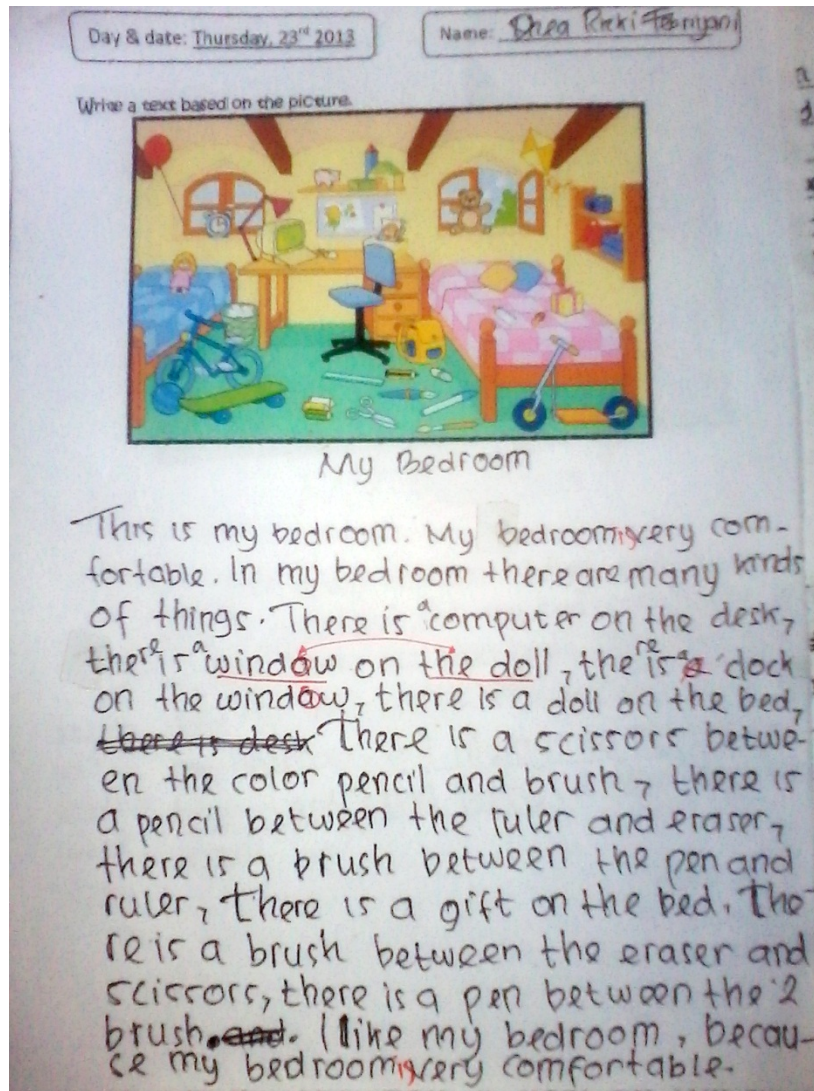 Day & date: Thursday, 23rd 2013
Name: Dhea Rizki Febriyani
Write a text based on the picture.
My Bedroom
This is my bedroom. My bedroom is very com-
fortable. In my bedroom there are many kinds
of things. There is a computer on the desk,
there is a window on the doll, there is a clock
on the window, there is a doll on the bed,
there is desk There is a scissors betwe-
en the color pencil and brush, there is
a pencil between the ruler and eraser,
there is a brush between the pen and
ruler, there is a gift on the bed. The
re is a brush between the eraser and
scissors, there is a pen between the 2
brush. and. I like my bedroom, becau-
se my bedroom is very comfortable.